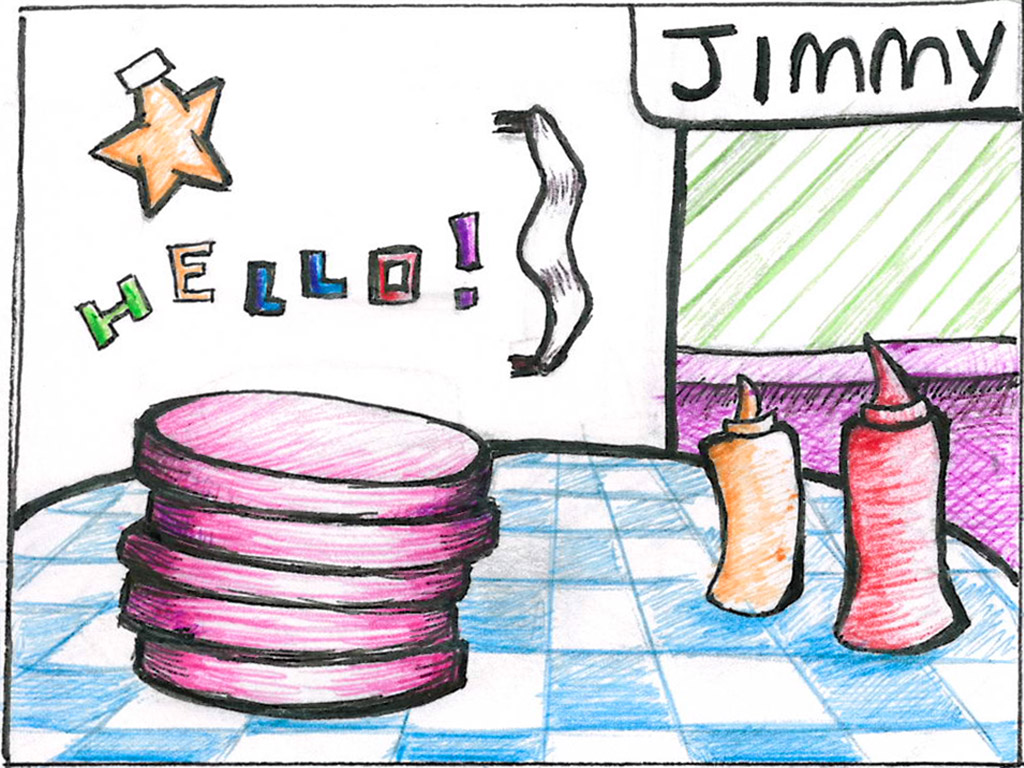 JIMMY
HELLO!